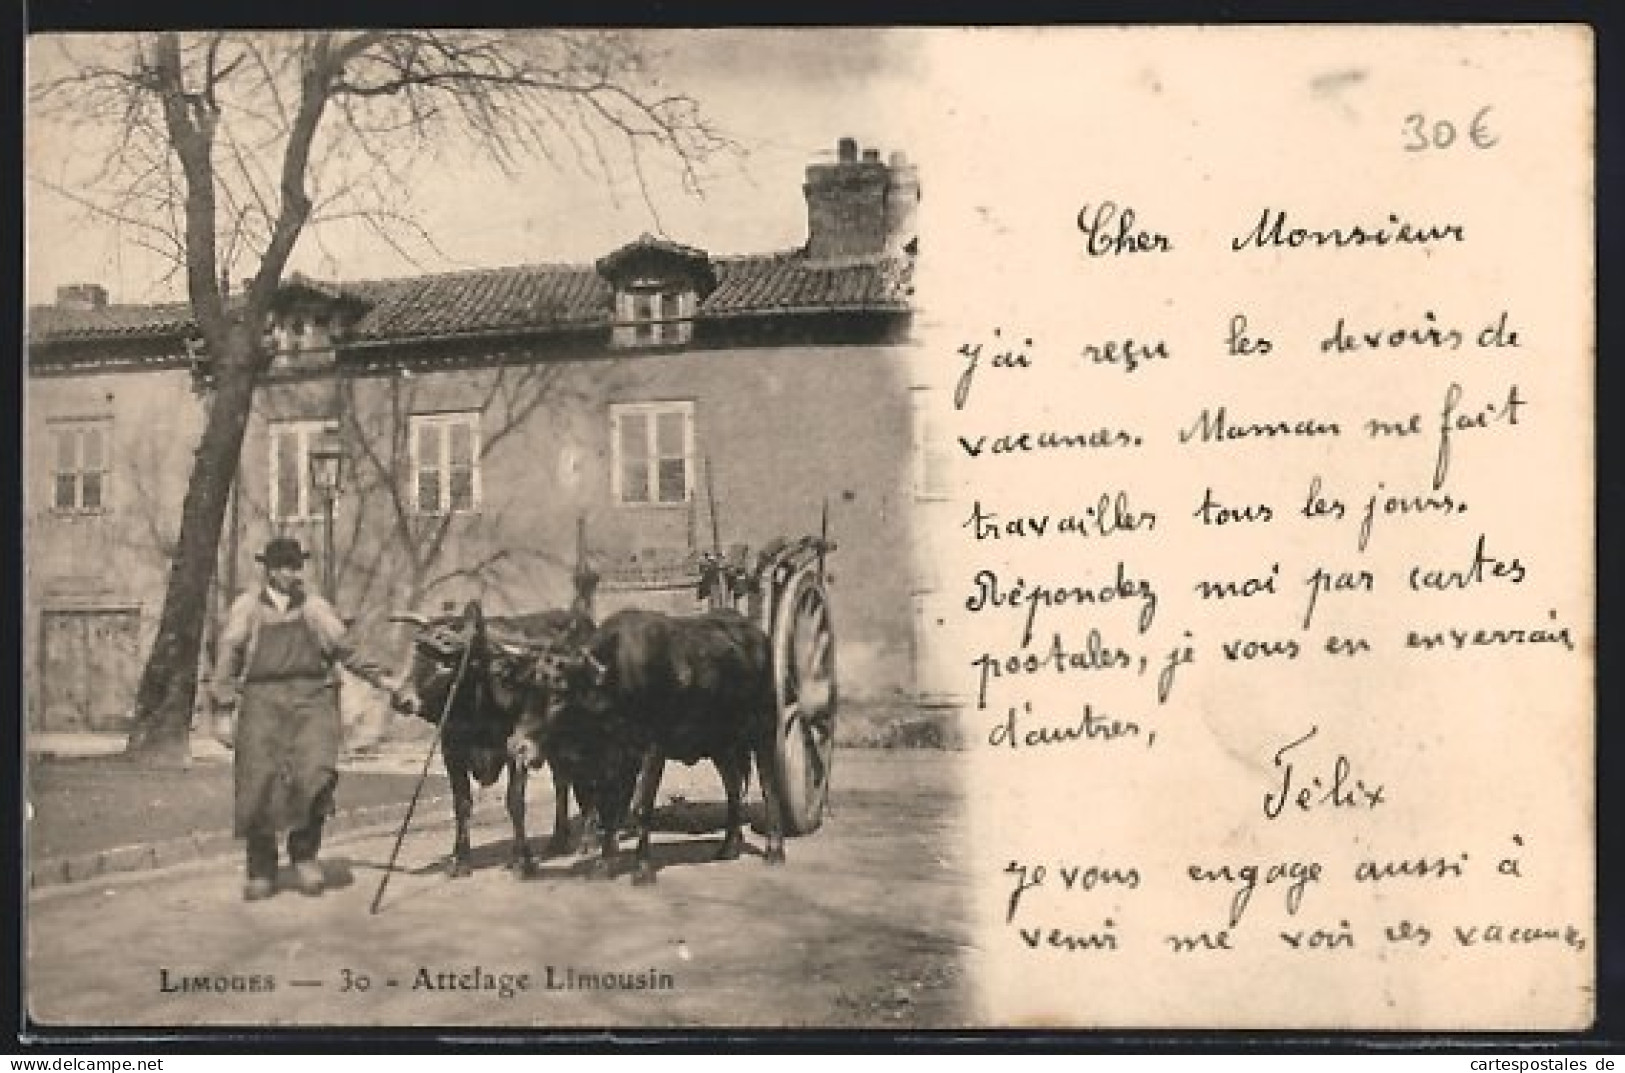 30€
Cher Monsieur
j'ai reçu les devoirs de
vacances. Maman me fait
travailler tous les jours.
Répondez moi par cartes
postales, je vous en enverrais
d'autres,
Félix
Je vous engage aussi à
venir me voir ces vacances,
LIMOGES — 30 - Attelage Limousin
www.delcampe.net
cartespostales de